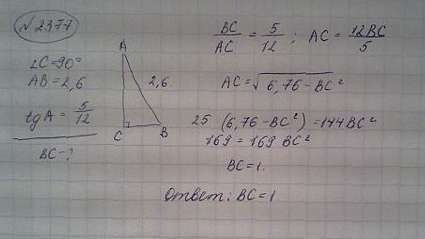 №2377
∠C=90°
AB=2,6
tgA = 5/12
BC-?
A
2,6
C
B
BC/AC = 5/12 ; AC = 12BC/5
AC=√6,76-BC²
25 (6,76-BC²)=144BC²
169=169BC²
BC=1.
Ответ: BC=1